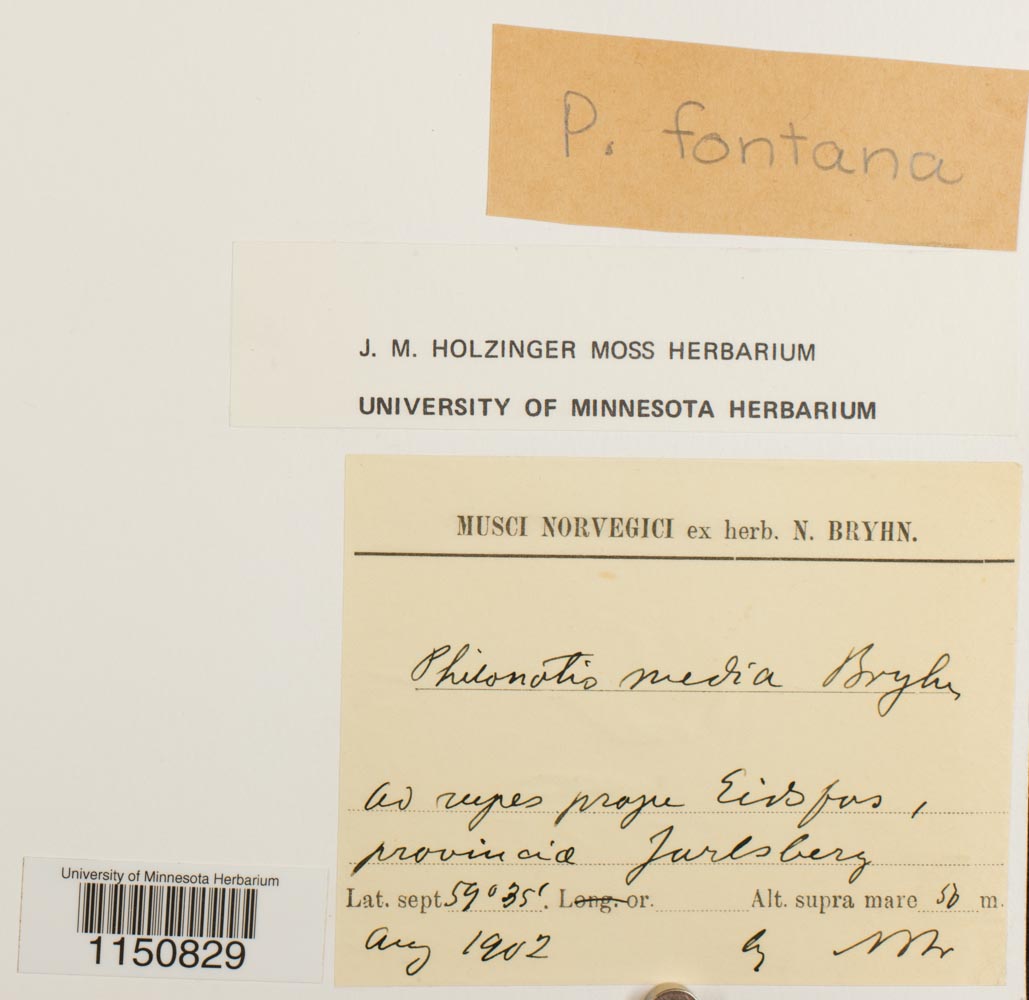 P. fontana
J. M. HOLZINGER MOSS HERBARIUM
UNIVERSITY OF MINNESOTA HERBARIUM
MUSCI NORVEGICI ex herb. N. BRYHN.
Philonotis media Bryhn
ad rupes prope Eidsfos,
provinciæ Jarlsberg
Lat. sept 59° 35'. Long. or. Alt. supra mare 50 m.
Aug 1902
University of Minnesota Herbarium
1150829